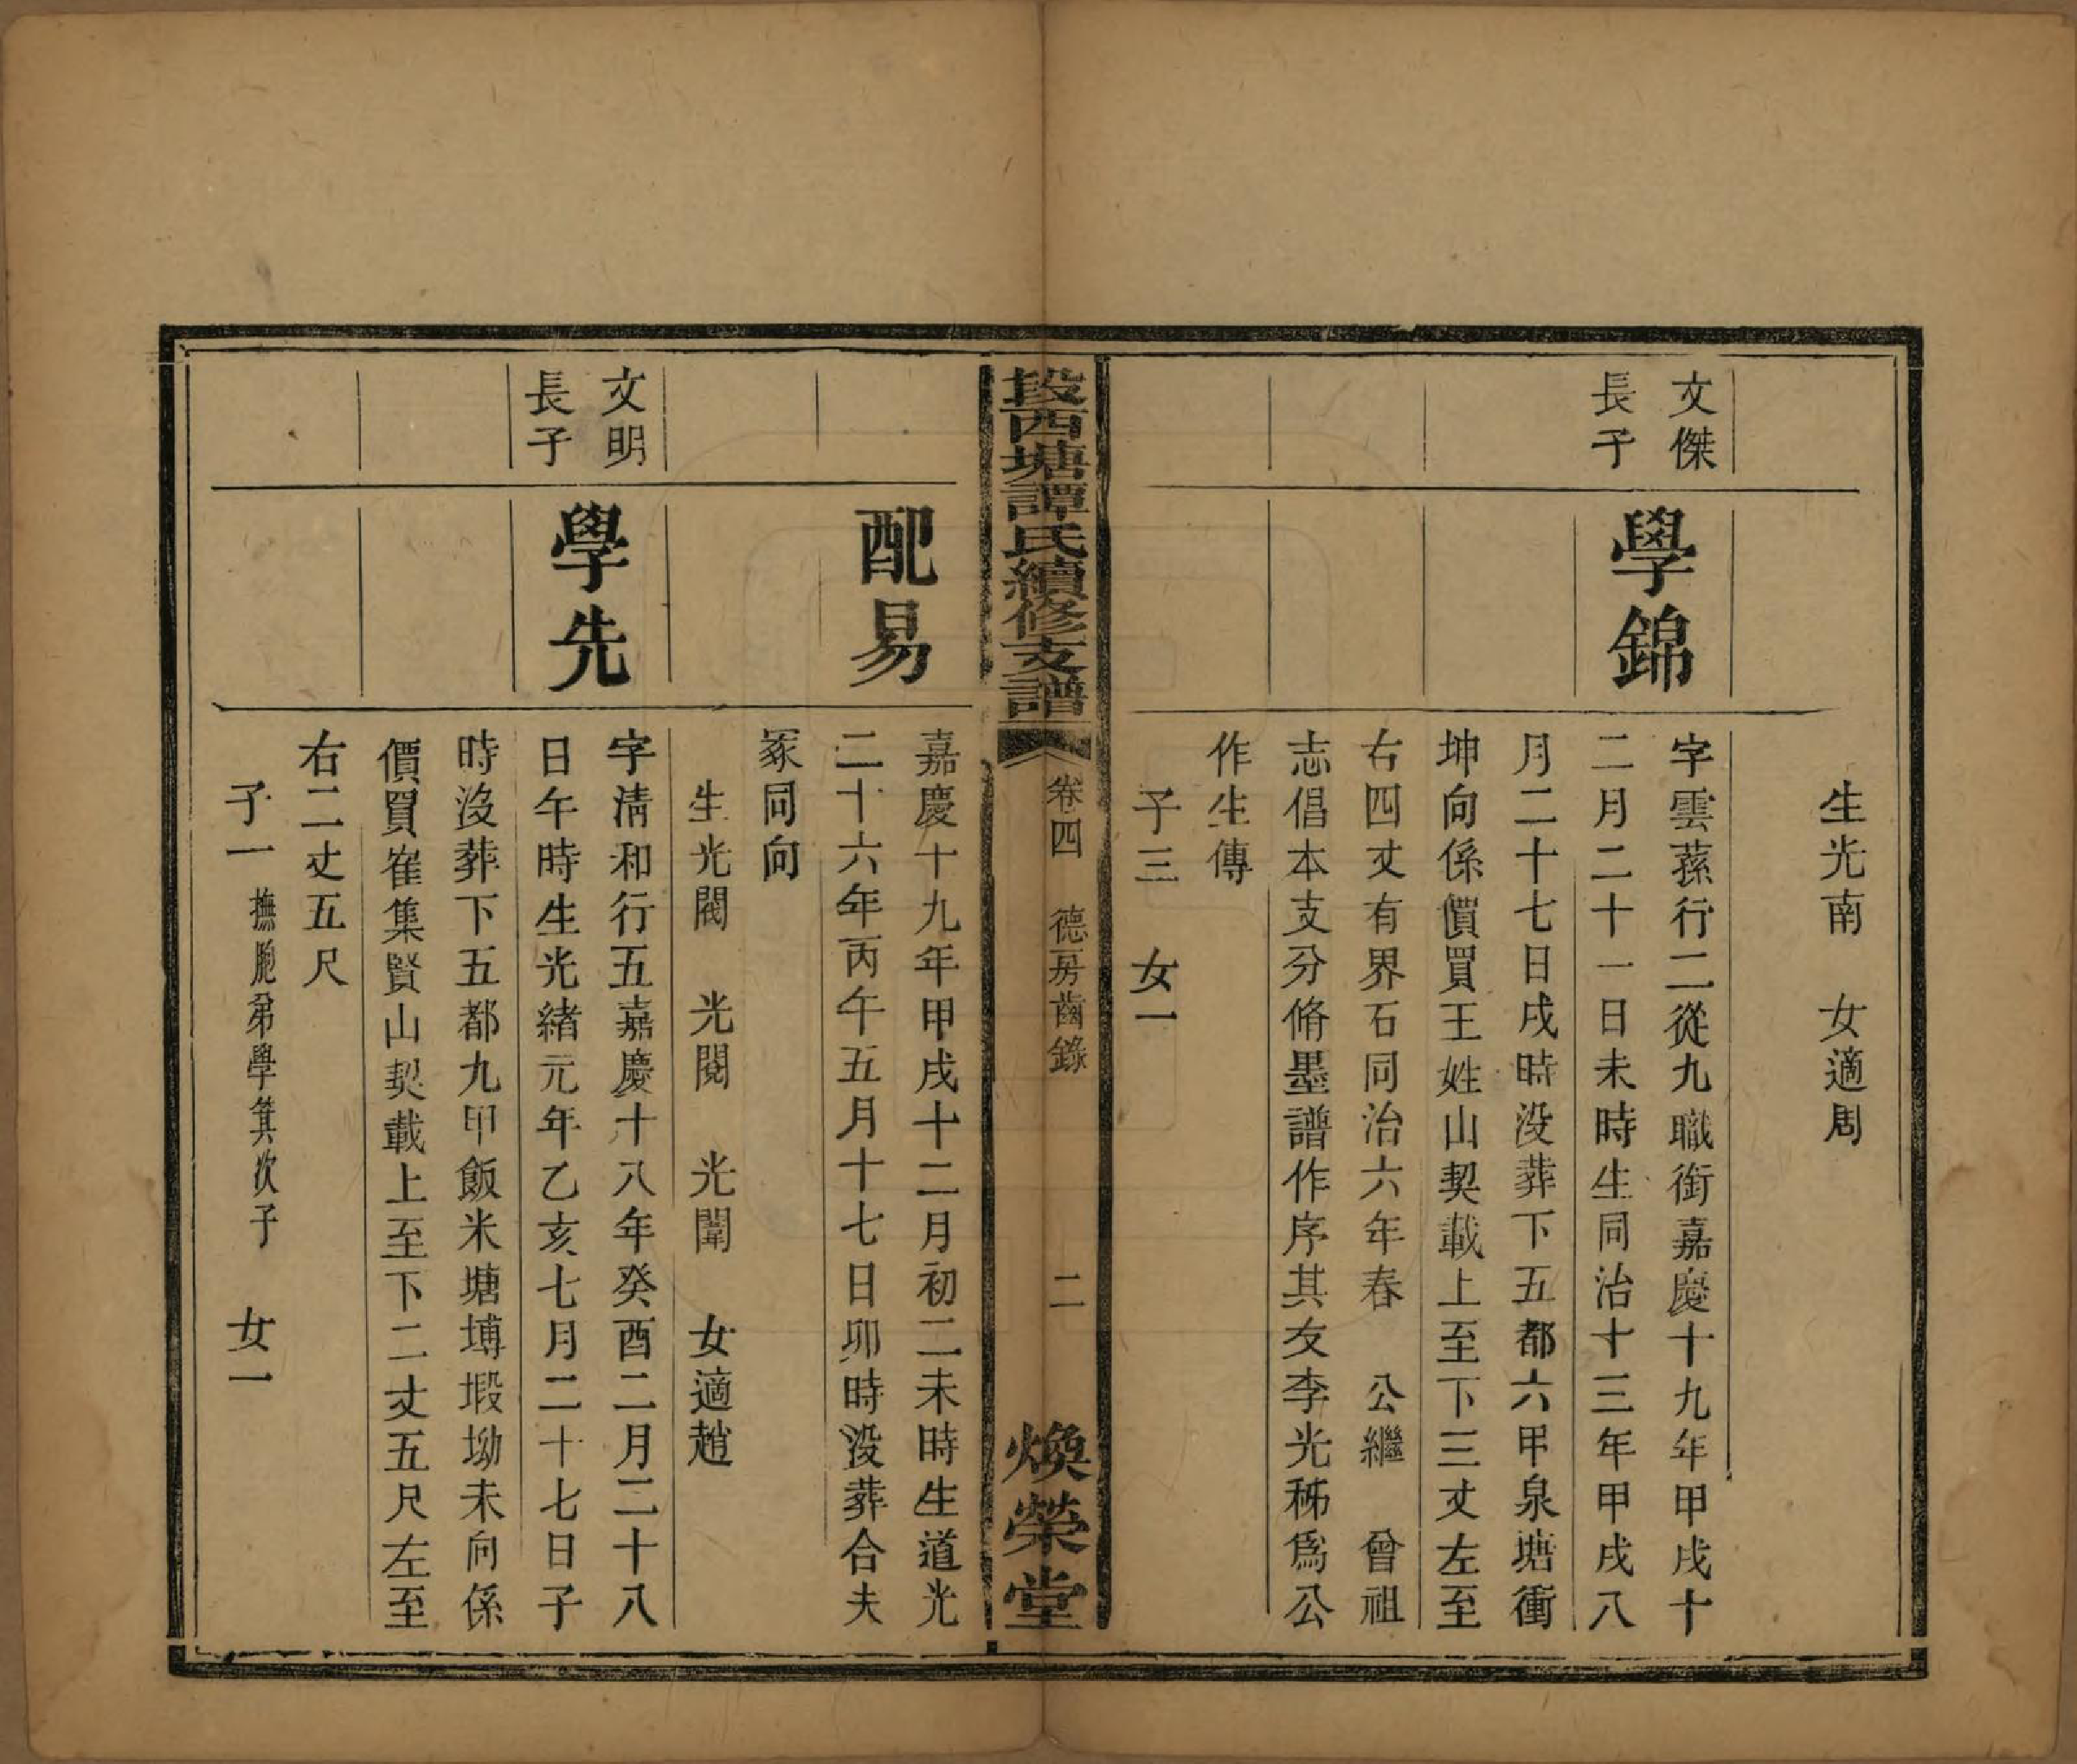 生光南　女適周
文傑
長子
學錦
字雲蓀行二從九職銜嘉慶十九年甲戌十
二月二十一日未時生同治十三年甲戌八
月二十七日戌時没葬下五都六甲泉塘衝
坤向係價買王姓山契載上至下三丈左至
右四丈有界石同治六年春　公繼　曾祖
志倡本支分脩墨譜作序其友李光秭爲公
作生傳
子三　女一
段西塘譚氏續修支譜
卷四　德房齒錄
二
煥榮堂
配易
嘉慶十九年甲戌十二月初二未時生道光
二十六年丙午五月十七日卯時没葬合夫
冢同向
生光閥　光閱　光闈　女適趙
文明
長子
學先
字清和行五嘉慶十八年癸酉二月二十八
日午時生光緒元年乙亥七月二十七日子
時没葬下五都九甲飯米塘塼塅坳未向係
價買崔集賢山契載上至下二丈五尺左至
右二丈五尺
子一　撫胞弟學箕次子　女一